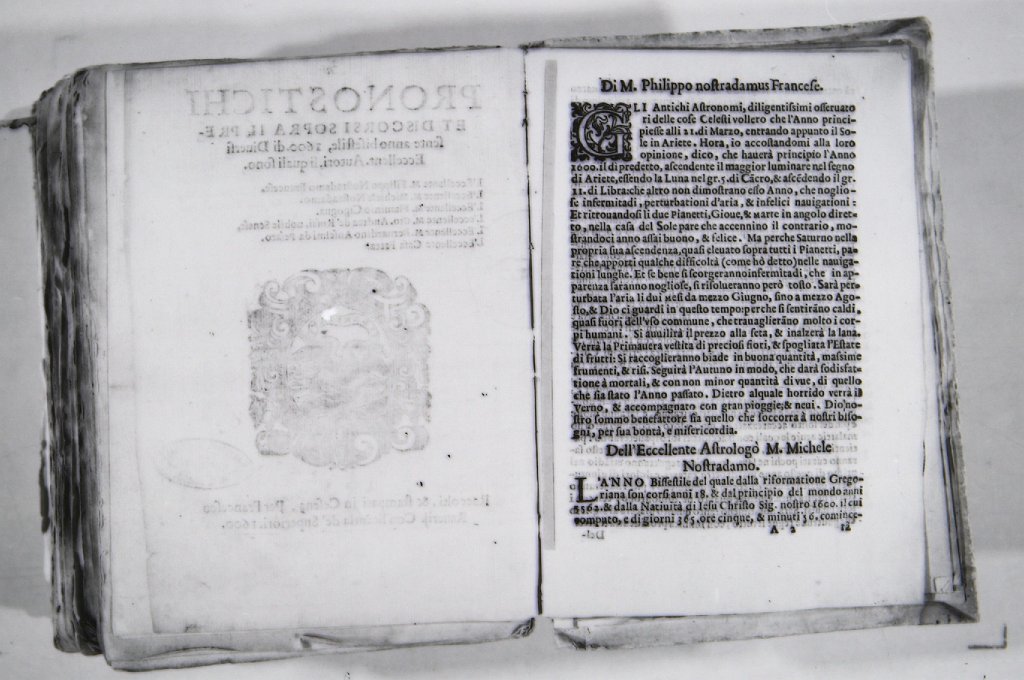 PRONOSTICHI
ET DISCORSI SOPRA IL PRE-
sente anno bisestile, 1600. di Diuersi
Eccellent. Autori. li quali sono.
L'Eccellente M. Filippo Nostradamo Francese.
L'Eccellente M. Michele Nostradamo.
Di M. Philippo nostradamus Francese.
GLI Antichi Astronomi, diligentissimi osseruato
ri delle cose Celesti vollero che l'Anno princi-
piesse alli 21. di Marzo, entrando appunto il So-
le in Ariete. Hora, io accostandomi alla loro
opinione, dico, che hauerà principio l'Anno
1600. il dì predetto, ascendente il maggior luminare nel segno
di Ariete, essendo la Luna nel gr. 5. di Cācro, & ascēdendo il gr.
11. di Libra: che altro non dimostrano esso Anno, che noglio-
se infermitadi, perturbationi d'aria, & infelici nauigationi:
Et ritrouandosi li due Pianetti, Gioue, & Marte in angolo diret-
to, nella casa del Sole pare che accennino il contrario, mo-
strandoci anno assai buono, & felice. Ma perche Saturno nella
propria sua ascendenza, quasi eleuato sopra tutti i Pianetti, pa-
re che apporti qualche difficoltà (come hò detto) nelle nauiga-
tioni lunghe. Et se bene si scorgeranno infermitadi, che in ap-
parenza saranno nogliose, si risolueranno però tosto. Sarà per-
turbata l'aria li dui Mesi da mezzo Giugno, sino a mezzo Ago-
sto, & Dio ci guardi in questo tempo: perche si sentirāno caldi,
quasi fuori dell'vso commune, che trauaglierāno molto i cor-
pi humani. Si auuilirà il prezzo alla seta, & inalzerà la lana.
Verrà la Primauera vestita di preciosi fiori, & spogliata l'Estate
di frutti: Si raccoglieranno biade in buona quantità, massime
frumenti, & risi. Seguirà l'Autuno in modo, che darà sodisfat-
tione à mortali, & con non minor quantità di vue, di quello
che sia stato l'Anno passato. Dietro alquale horrido verrà il
Verno, & accompagnato con gran pioggie; & neui. Dio no-
stro sommo benefattore sia quello che soccorra à nostri biso-
gni, per sua bontà, e misericordia.
Dell'Eccellente Astrologo M. Michele
Nostradamo.
L'ANNO Bissestile del quale dalla riformatione Grego-
riana son corsi anni 18. & dal principio del mondo anni
5562. & dalla Natiuità di Iesu Christo Sig. nostro 1600. il cui
computo, e di giorni 365. ore cinque, & minuti 56. comince-
A 2